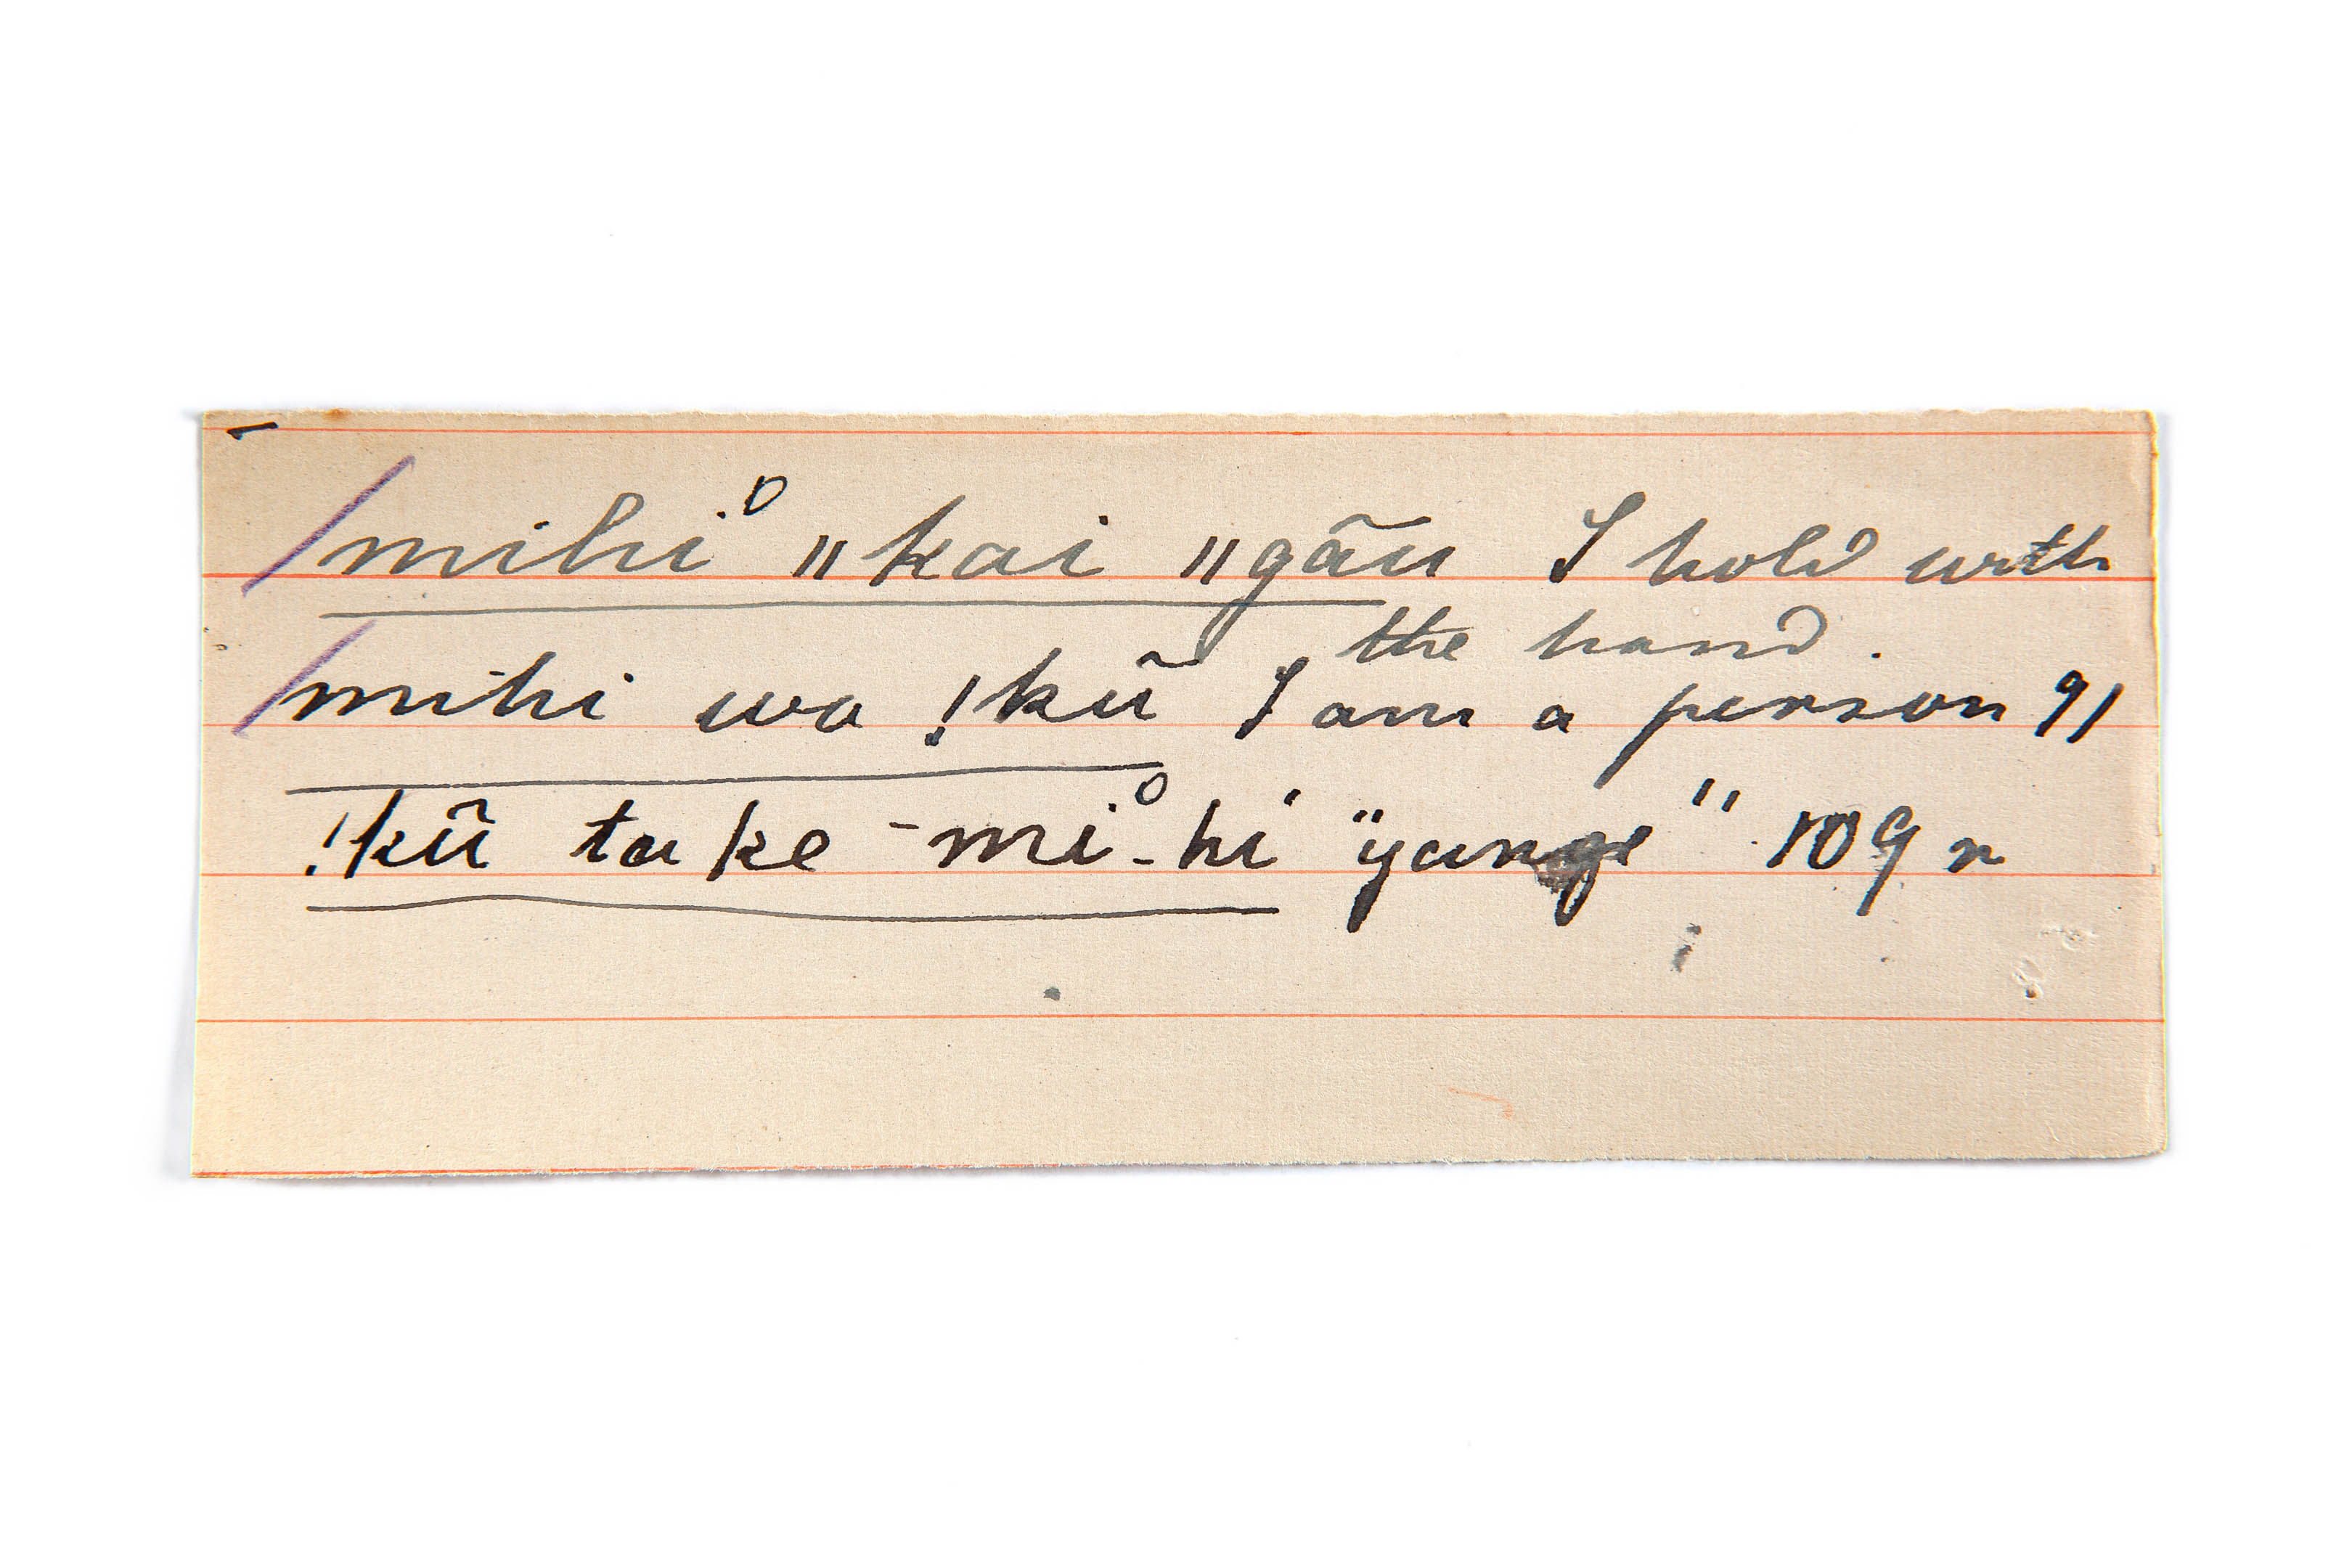 mihi° ǁkai ǁgãu I hold with
the hand.
mihi wa !kũ I am a person 91
!kũ ta ke - mi° - hí "yange" 109 r